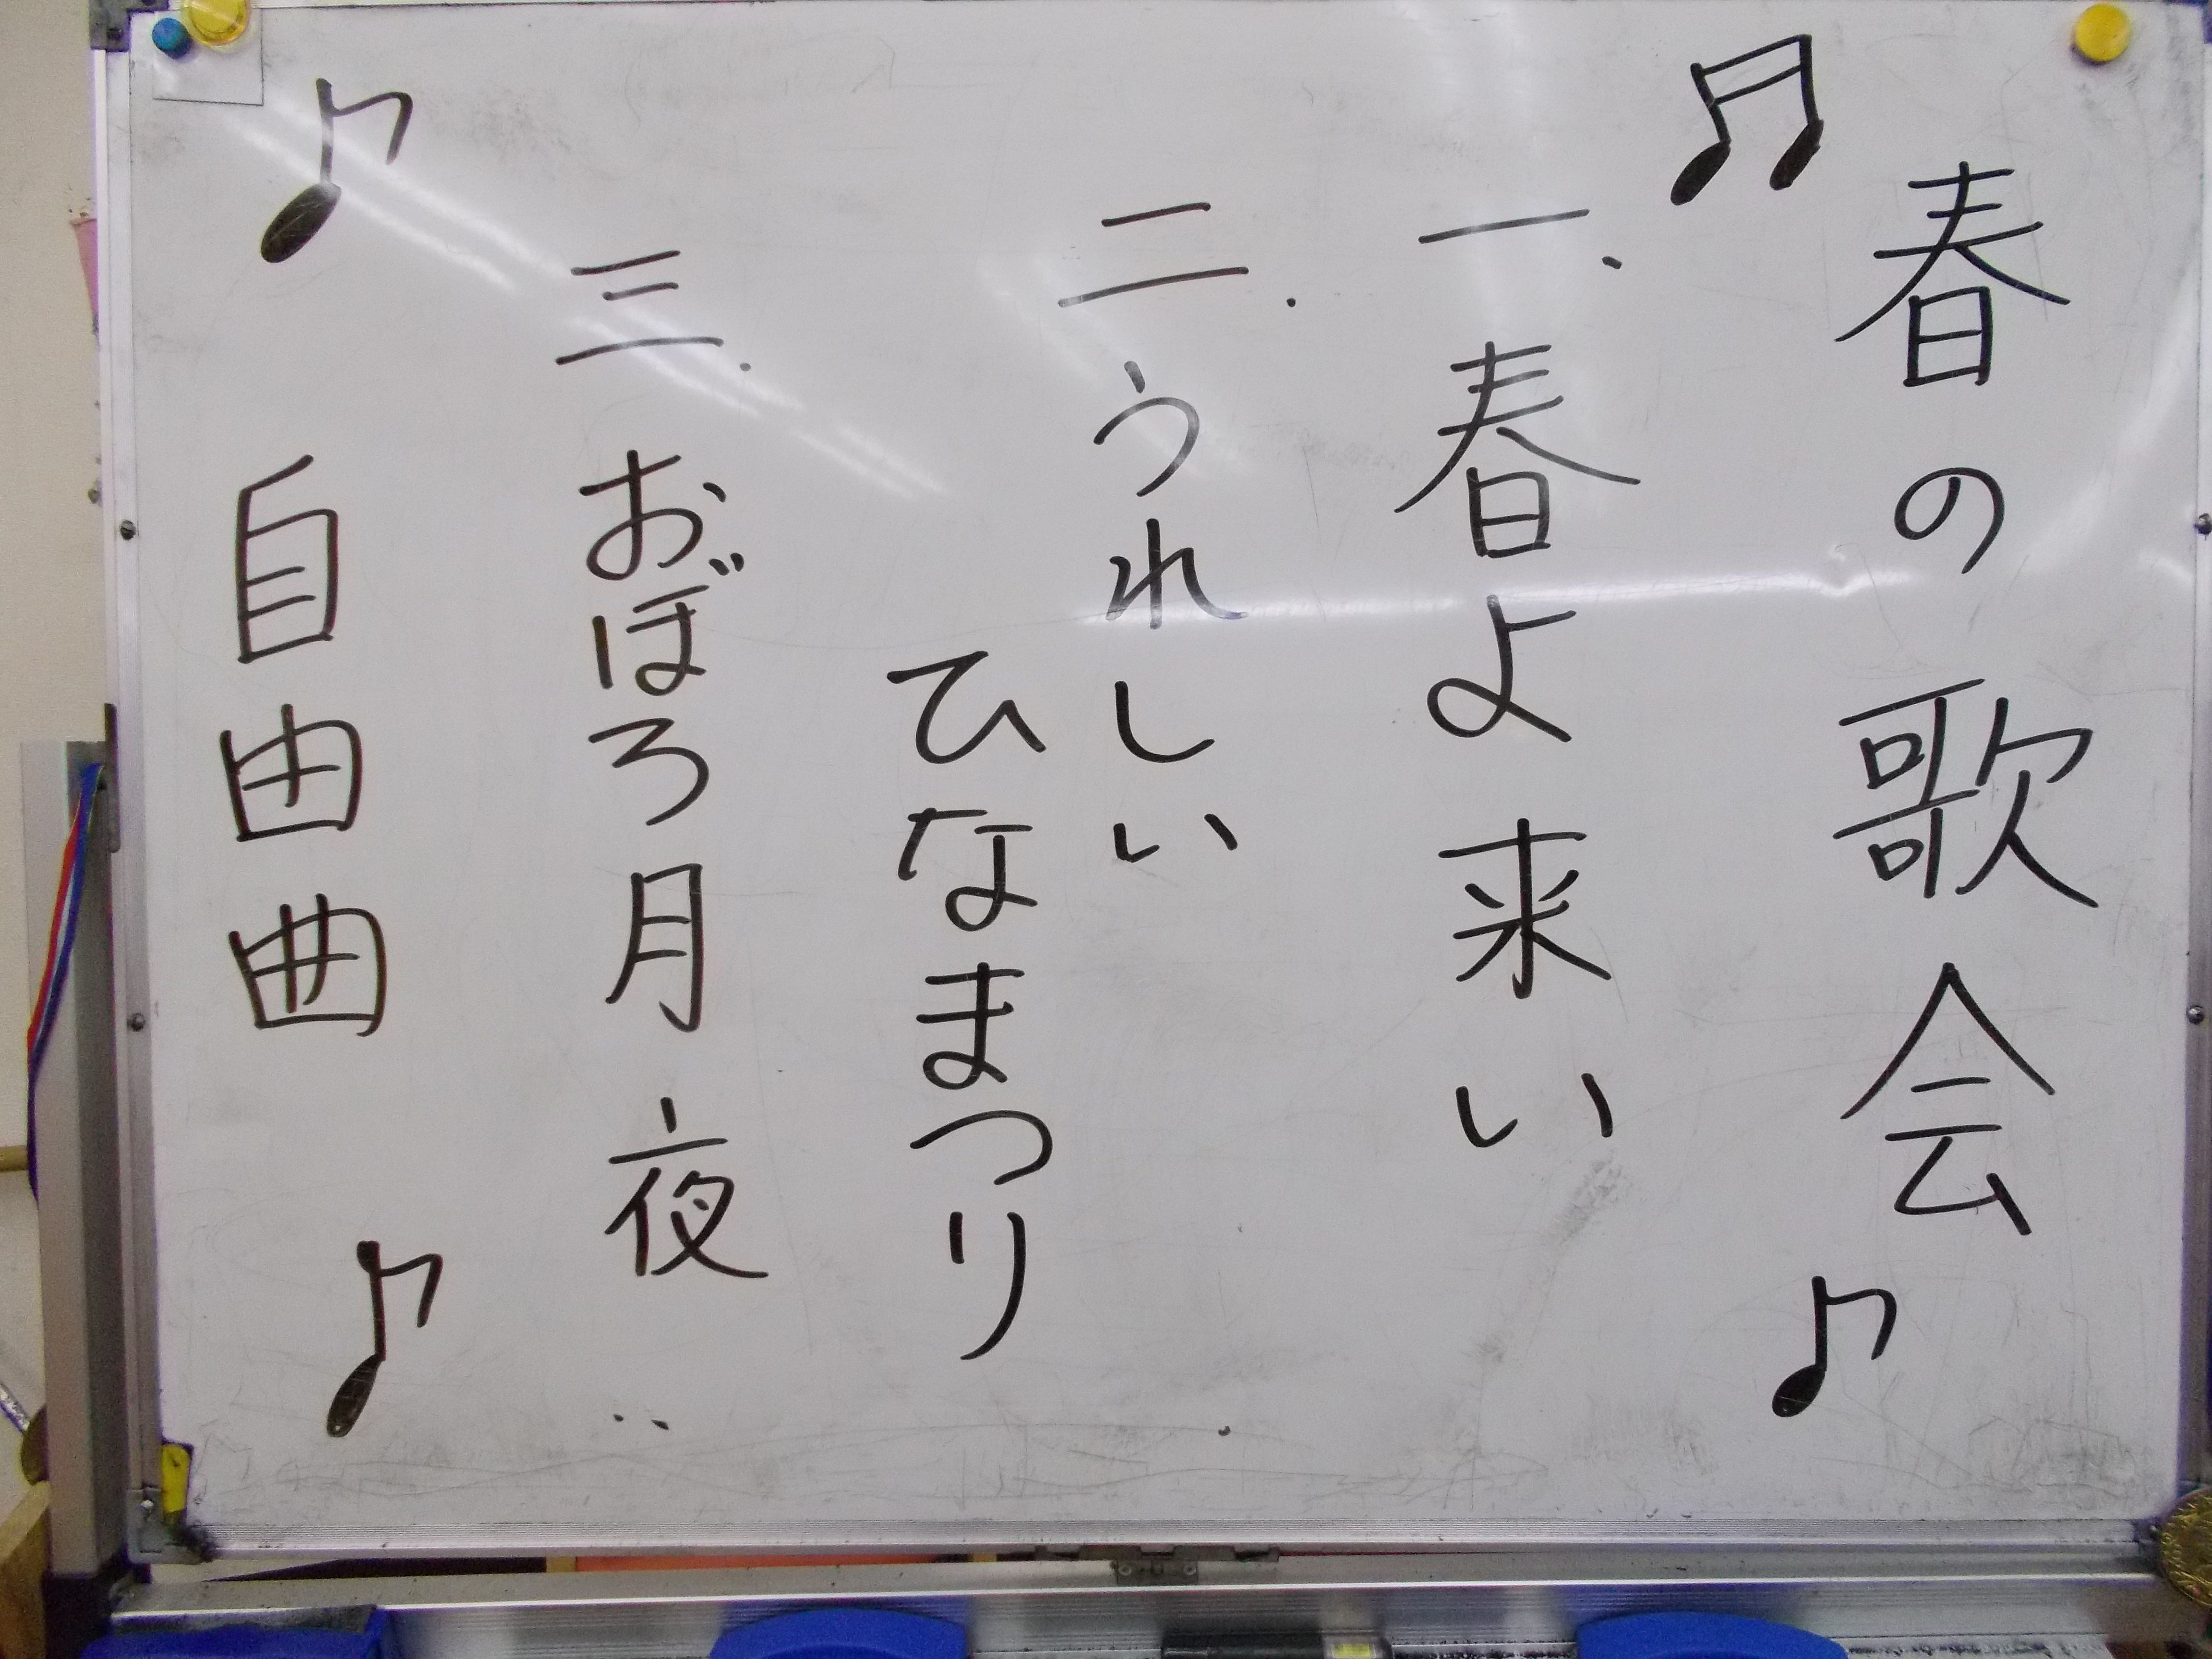 春の歌会
一、春よ来い
二.うれしい
ひなまつり
三.おぼろ月夜
自由曲